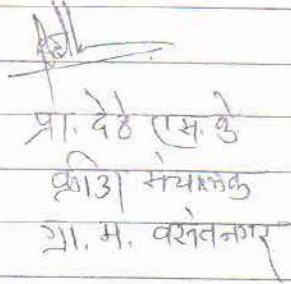 प्रा. देठे एस. के
क्रीडा संचालक
ग्रा. म. वसंतनगर